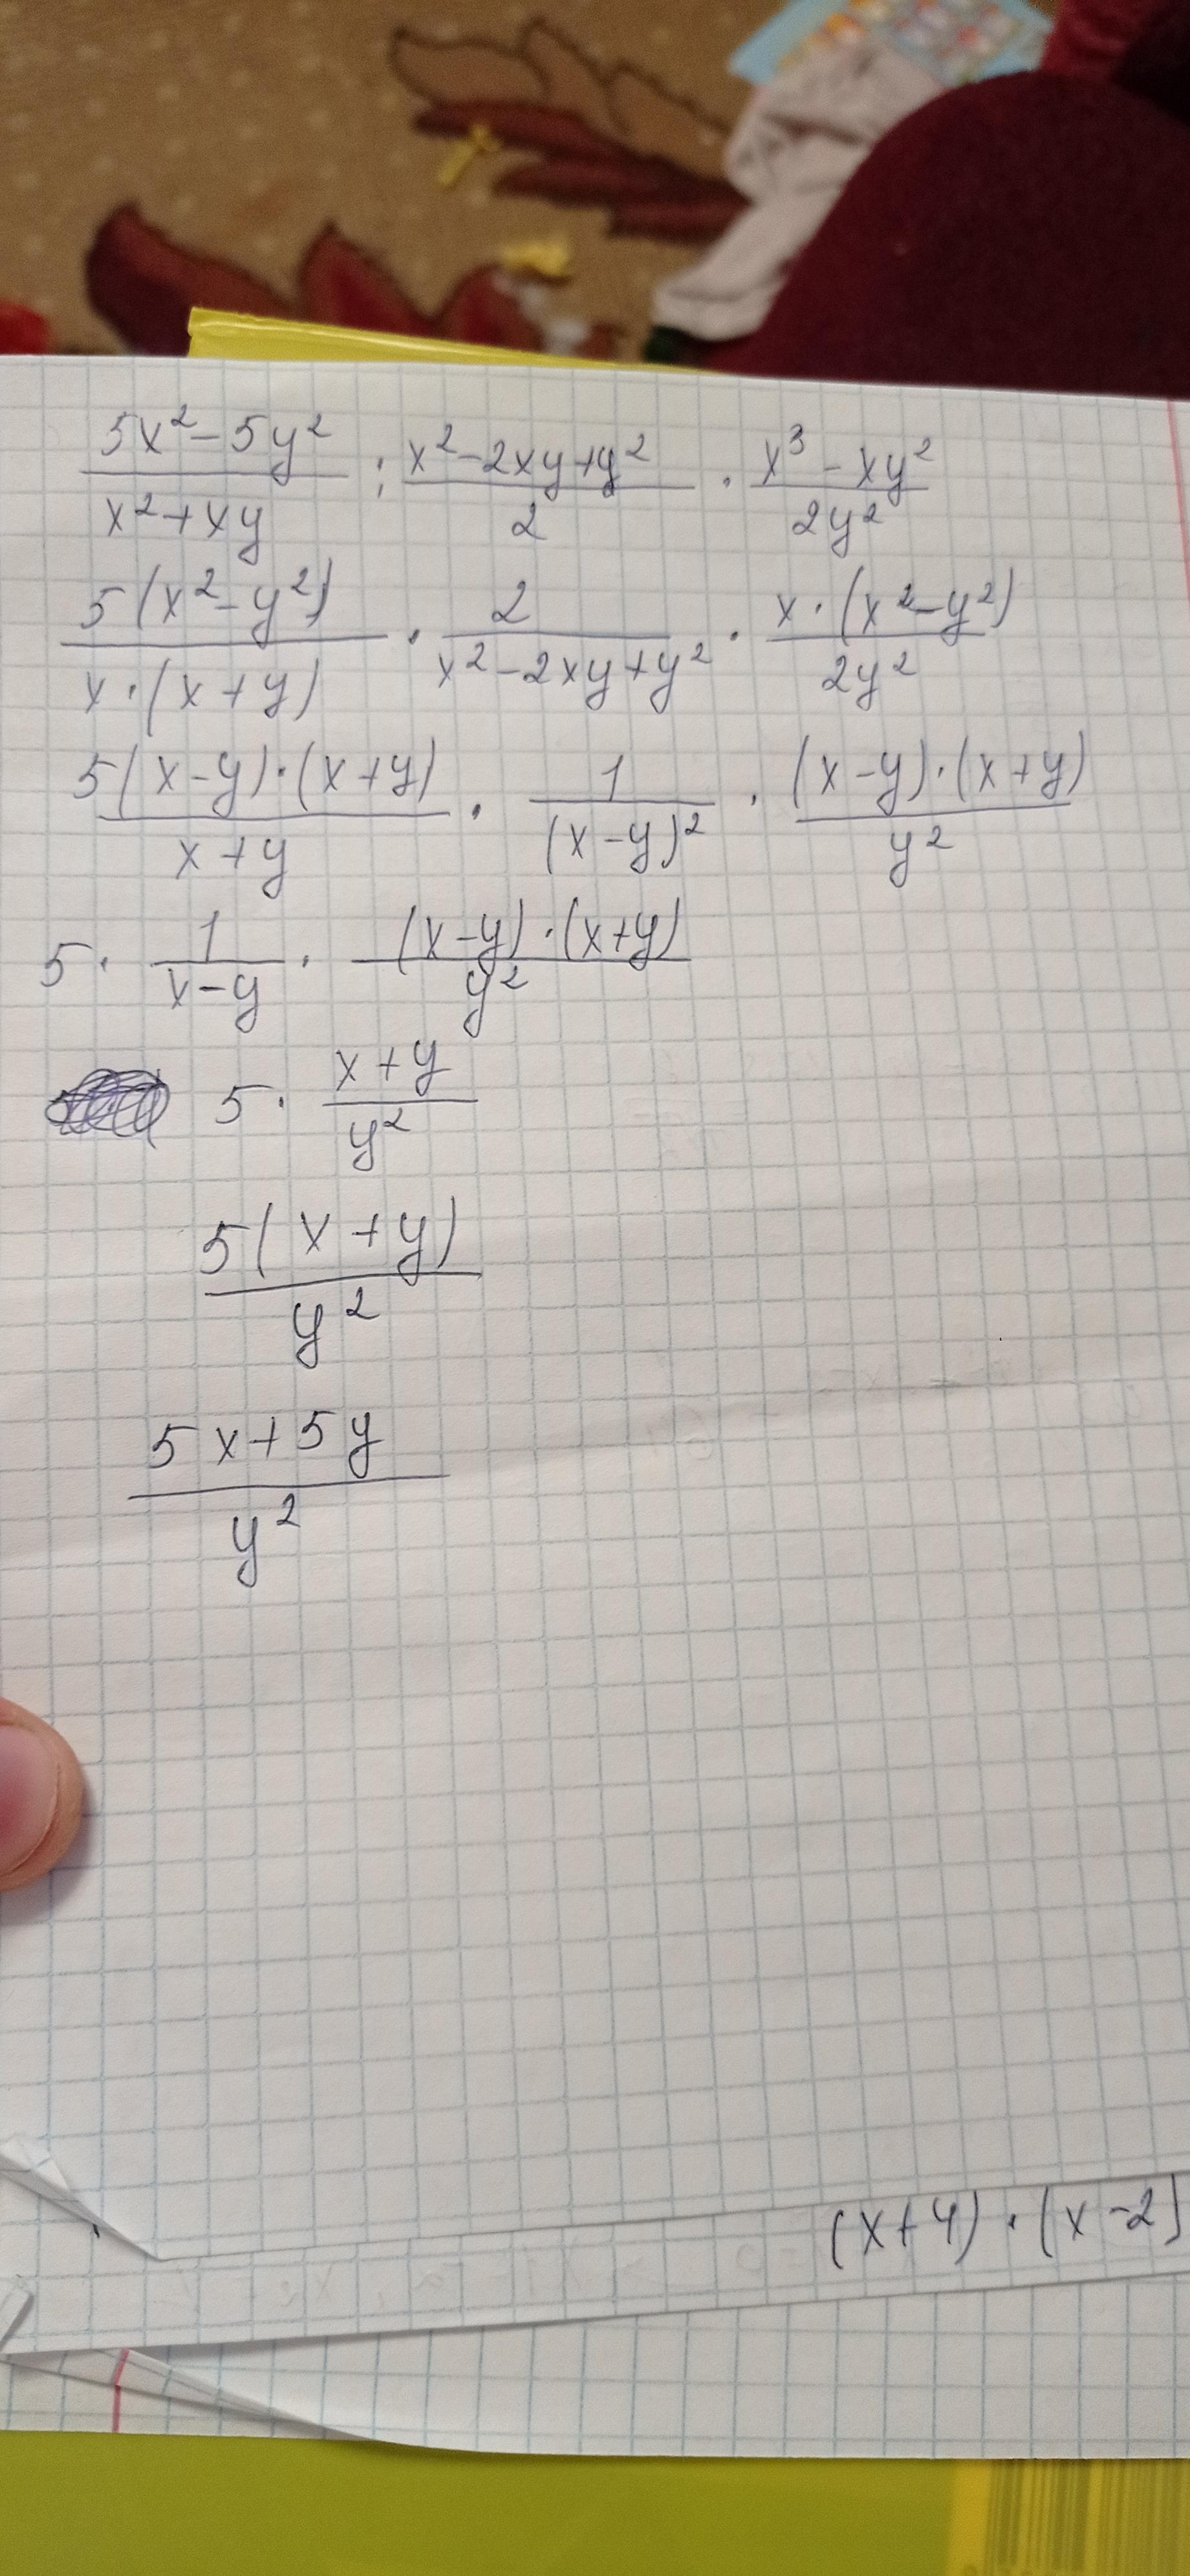 (5x² - 5y²)/(x² + xy) : (x² - 2xy + y²)/2 · (x³ - xy²)/(2y²)
5(x² - y²)/(x · (x + y)) · 2/(x² - 2xy + y²) · x · (x² - y²)/(2y²)
5(x - y) · (x + y)/(x + y) · 1/(x - y)² · (x - y) · (x + y)/y²
5 · 1/(x - y) · (x - y) · (x + y)/y²
5 · (x + y)/y²
5(x + y)/y²
(5x + 5y)/y²
(x + 4) · (x - 2)